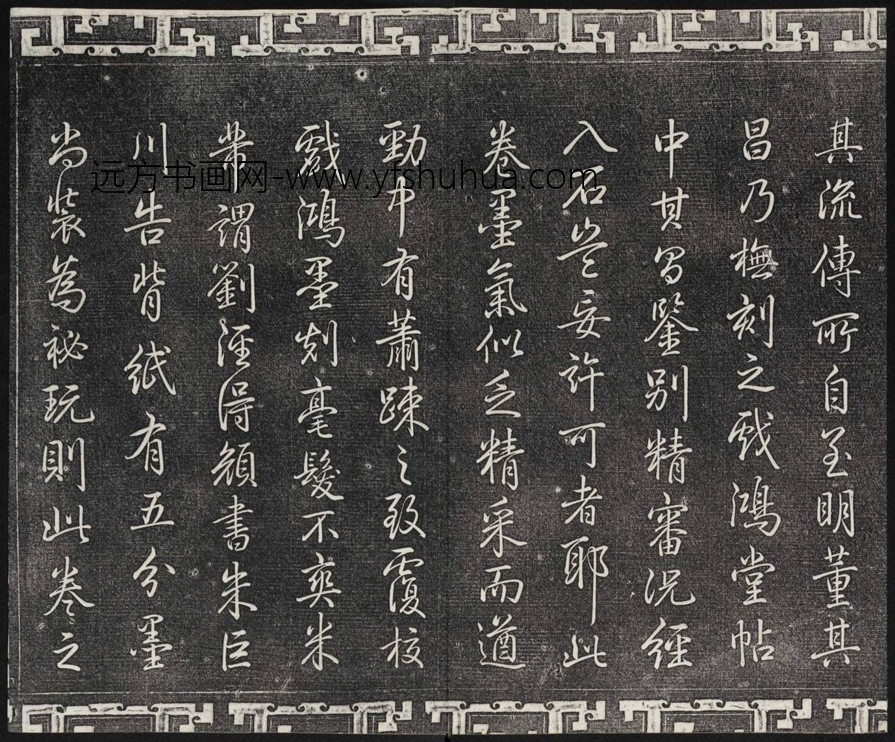 其流傳所自至明董其
昌乃橅刻之戲鴻堂帖
中其昌鑒别精審況經
入石豈妄許可者耶此
卷墨氣似乏精采而遒
勁中有蕭疎之致覆校
戲鴻墨刻毫髮不爽米
芾謂劉涇得顔書朱巨
川告背紙有五分墨
尚裝為祕玩則此卷之
远方书画网-www.yfshuhua.com